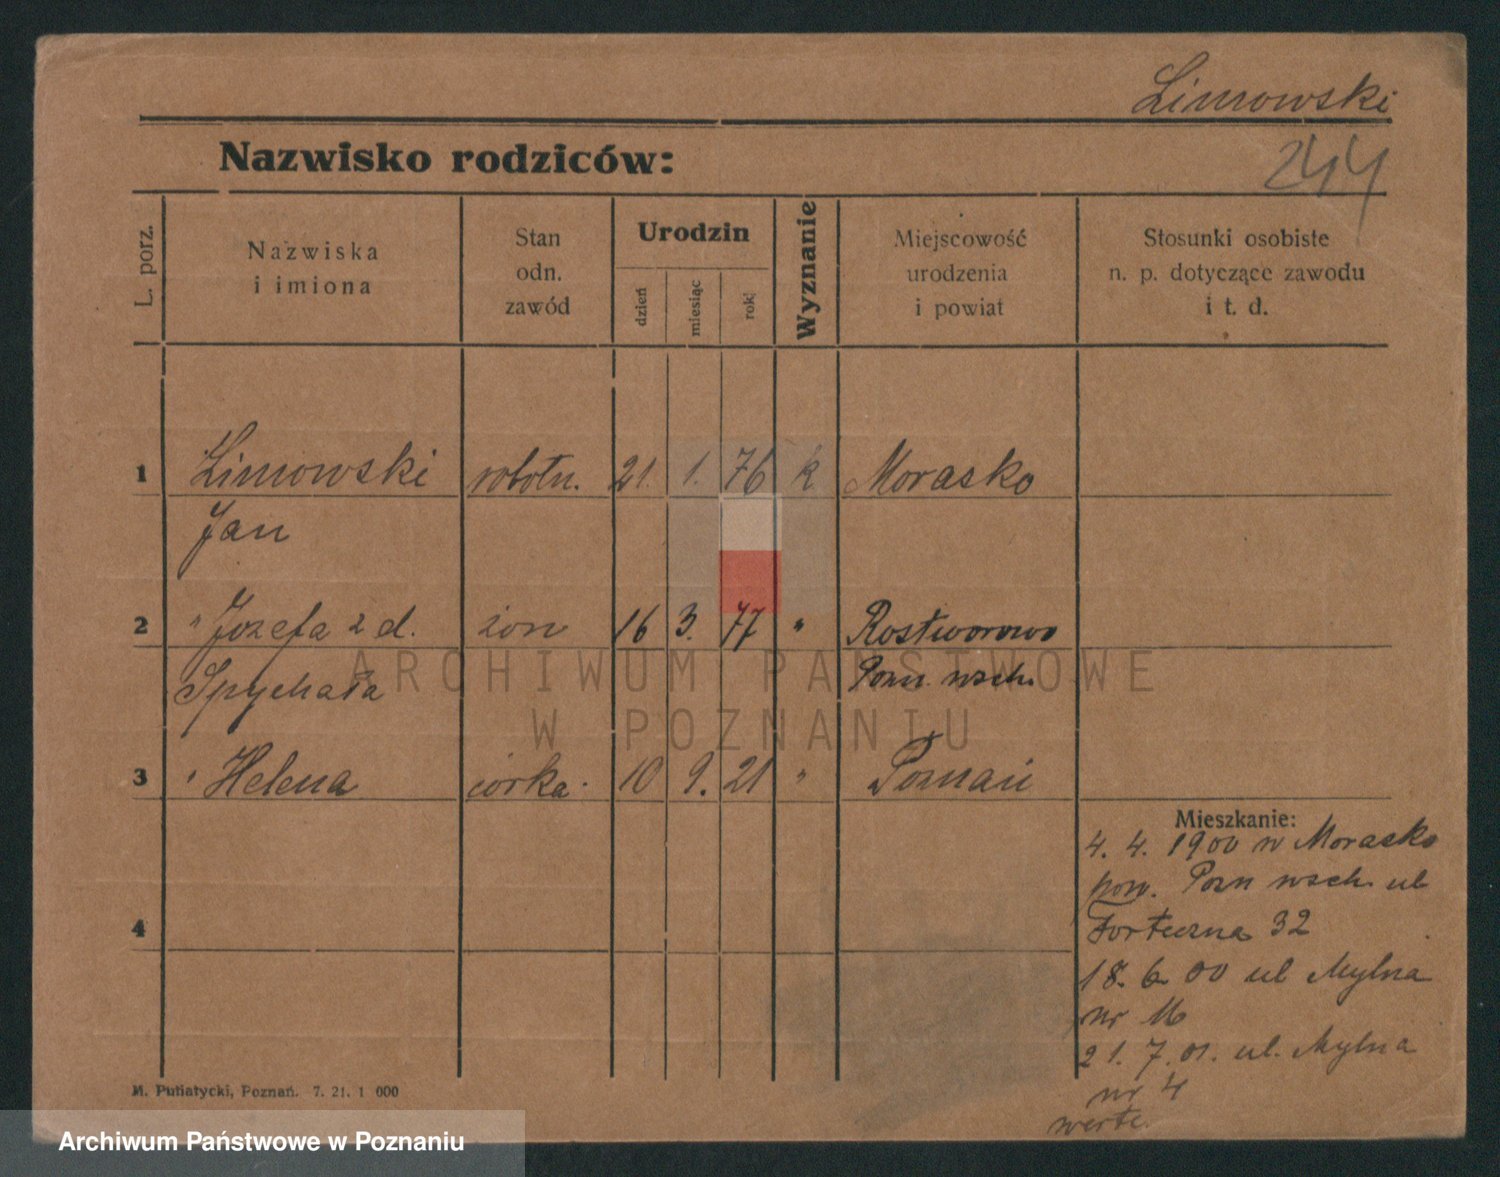 Limowski
Nazwisko rodziców:
244
L. porz.
Nazwiska
i imiona
Stan
odn.
zawód
Urodzin
dzień
miesiąc
rok
Wyznanie
Miejscowość
urodzenia
i powiat
Stosunki osobiste
n. p. dotyczące zawodu
i t. d.
1 Limowski robotn. 21. 1. 76 k Morasko
Jan
2 " Józefa z d. żon 16 3. 77 " Rostworowo
Spychała Pozn. wsch.
3 " Helena córka 10 9. 21 " Poznań
Mieszkanie:
4. 4. 1900 w Morasko
pow. Pozn wsch. ul
Forteczna 32
4
18. 6. 00 ul Mylna
nr 16
21. 7. 01. ul. Mylna
nr 4
werte.
M. Putiatycki, Poznań. 7. 21. 1 000
ARCHIWUM PAŃSTWOWE
W POZNANIU
Archiwum Państwowe w Poznaniu